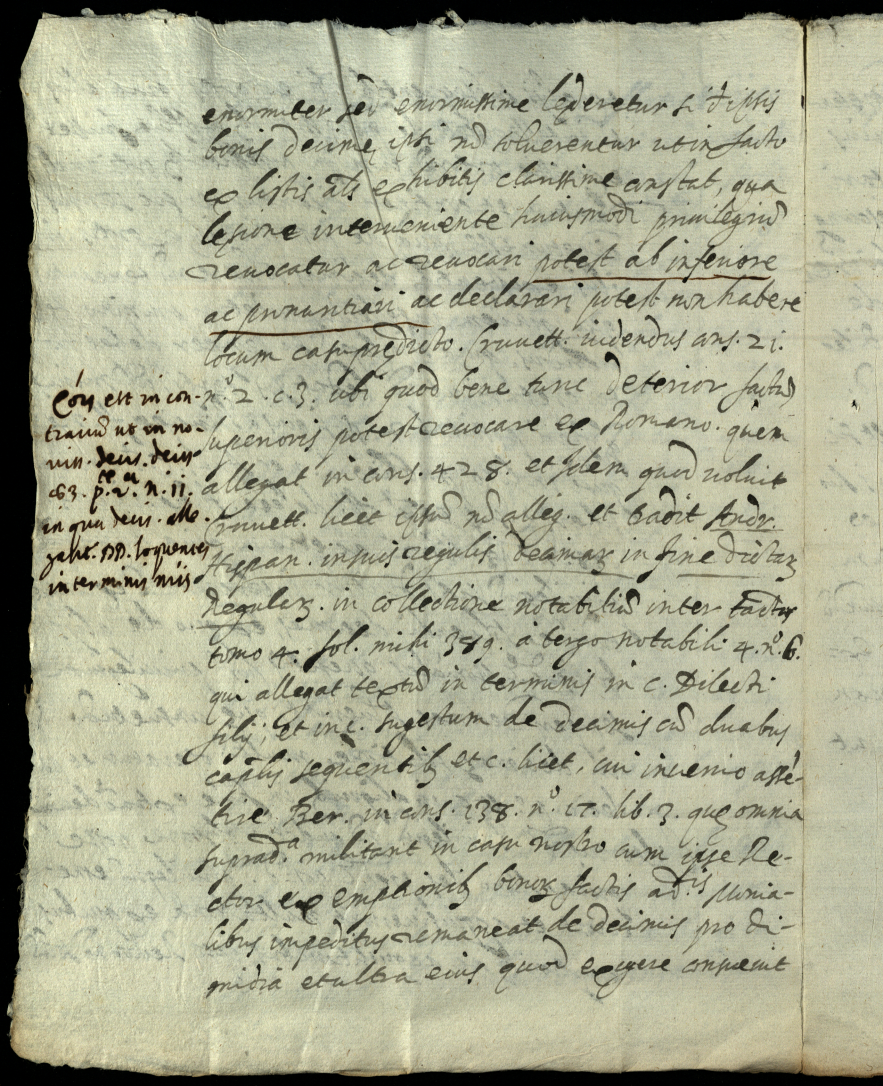 enormiter seu enormissime lederetur si d. ipsis
bonis decime ipsi nō soluerentur ut in facto
ex listis als exhibitis clarissime constat, qua
lesione interueniente huiusmodi priuilegiū
reuocatur ac reuocari potest ab inferiore
ac pronuntiari ac declarari potest non habere
locum casu predicto. Cruuett. uidendus cons. 21.
n.º 2. c. 3. ubi quod bene tunc deterior factū
superioris potest reuocare ex Romano. quem
allegat in cons. 428. et Idem quod uoluit
Cruuett. licet ipsū nō alleg. et tradit Andr.
Hispan. in suis regulis decimarꝫ in fine dictarꝫ
Regularꝫ. in collectione notabiliū inter tactus
tomo 4. fol. mihi 389. a tergo notabili 4. n.º 6.
qui allegat textū in terminis in c. Dilecti
filij, et in c. sugestum de decimis cū duabus
cap̄lis sequentibꝫ et c. licet, cui inuenio assē-
tire Ber. in cons. 138. n.º 17. lib. 3. que omnia
suprad.ª militant in casu nostro cum ipse Re-
ctor ex emptionibꝫ bonorꝫ factis a d.ⁱˢ Monia-
libus impeditus remaneat de decimis pro di-
midia et ultra eius quod exigere consueuit
Cōis est in con-
trariū ut in no-
uiss. decis. decis.
63. p.te 2.ª n. 11.
in qua decis. alle-
gant. DD. loquentes
in terminis nr̄is